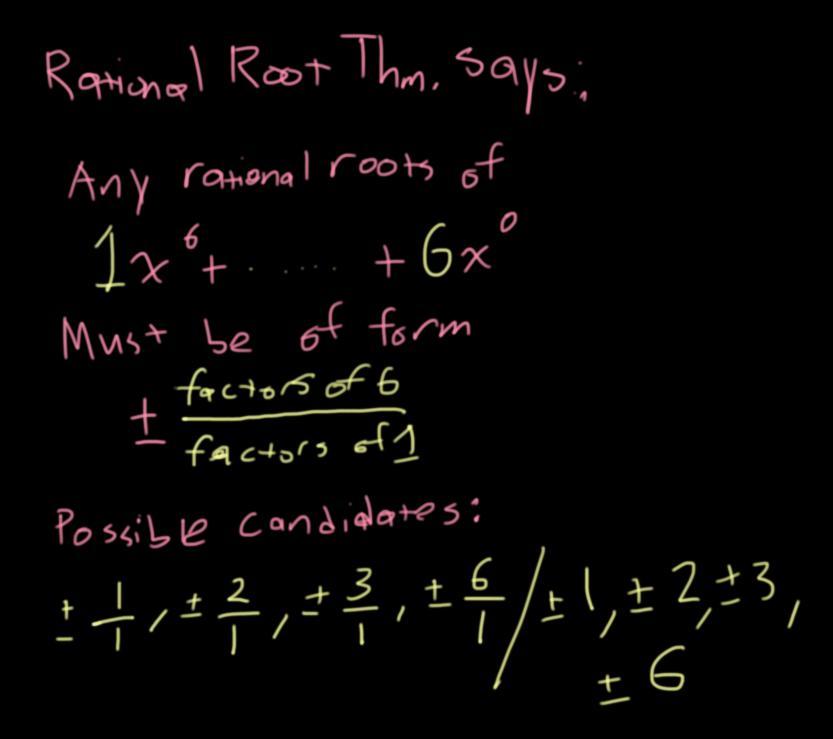 Rational Root Thm. says:
Any rational roots of
1x⁶ + ...... + 6x⁰
Must be of form
± factors of 6 / factors of 1
Possible candidates:
± 1/1, ± 2/1, ± 3/1, ± 6/1 / ±1, ±2, ±3,
± 6